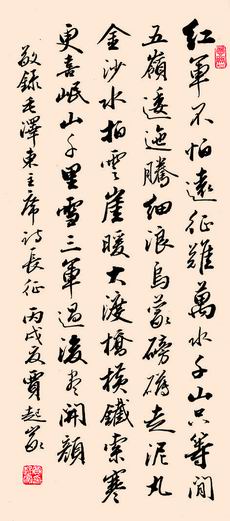 红軍不怕遠征難萬水千山只等閒
五嶺逶迤騰細浪烏蒙磅礴走泥丸
金沙水拍雲崖暖大渡橋横鐵索寒
更喜岷山千里雪三軍過後尽開顔
敬錄毛澤東主席詩長征丙戌夏賈起家